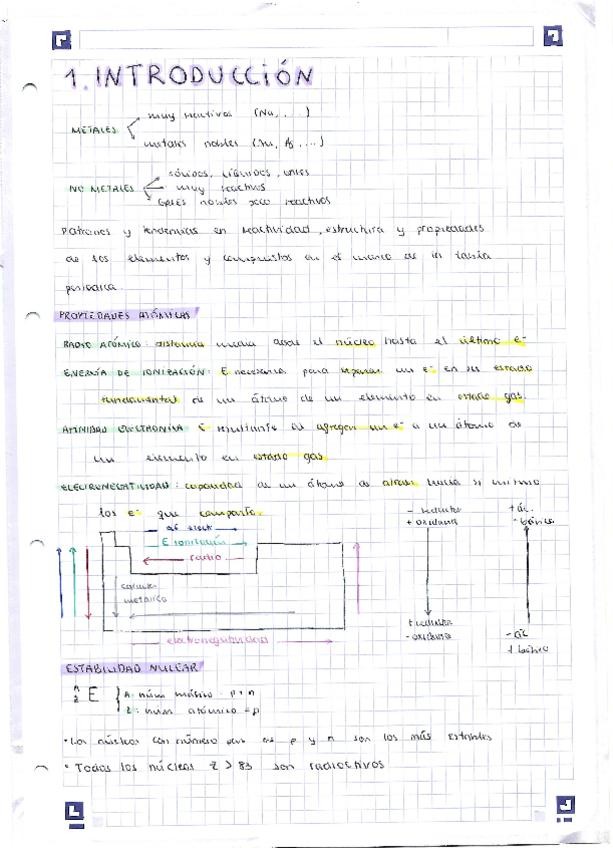 1. INTRODUCCIÓN
muy reactivos (Na, . )
METALES
metales nobles ( , ...)
sólidos, líquidos,
NO METALES muy reactivos
Gases nobles poco reactivos
Patrones y tendencias en reactividad, estructura y propiedades
de los elementos y compuestos en el marco de la tabla
periódica.
PROPIEDADES ATÓMICAS
RADIO ATÓMICO: distancia desde el núcleo hasta el último e-
ENERGÍA DE IONIZACIÓN: E necesaria para separar un e- en su estado
fundamental de un átomo de un elemento en estado gas.
AFINIDAD ELECTRÓNICA E resultante de agregar un e- a un átomo de
un elemento en estado gas
ELECTRONEGATIVIDAD: capacidad de un átomo de atraer hacia sí mismo
los e- que comparte.
af elect
E ionización
radio
caract.
metálico
electronegatividad
- reductor
+ oxidante
+ reductor
- oxidante
+ ác.
- básico
- ác
+ básico
ESTABILIDAD NUCLEAR
A
Z E
A: núm másico = p + n
Z: núm atómico = p
• Los núcleos con número par de p y n son los más estables
• Todos los núcleos Z > 83 son radioactivos